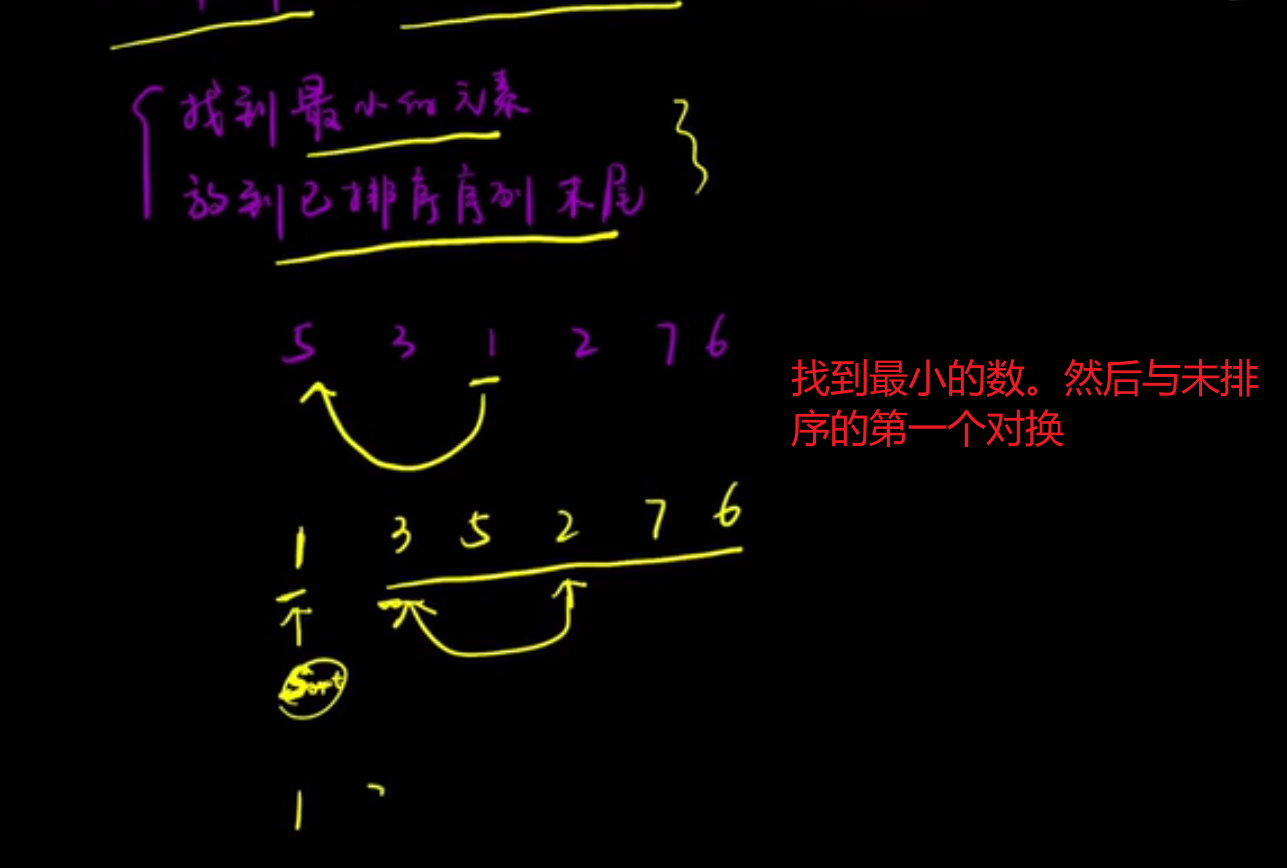 找到最小的元素
放到已排序序列末尾
5 3 1 2 7 6
找到最小的数。然后与未排
序的第一个对换
1 3 5 2 7 6
Sort
1